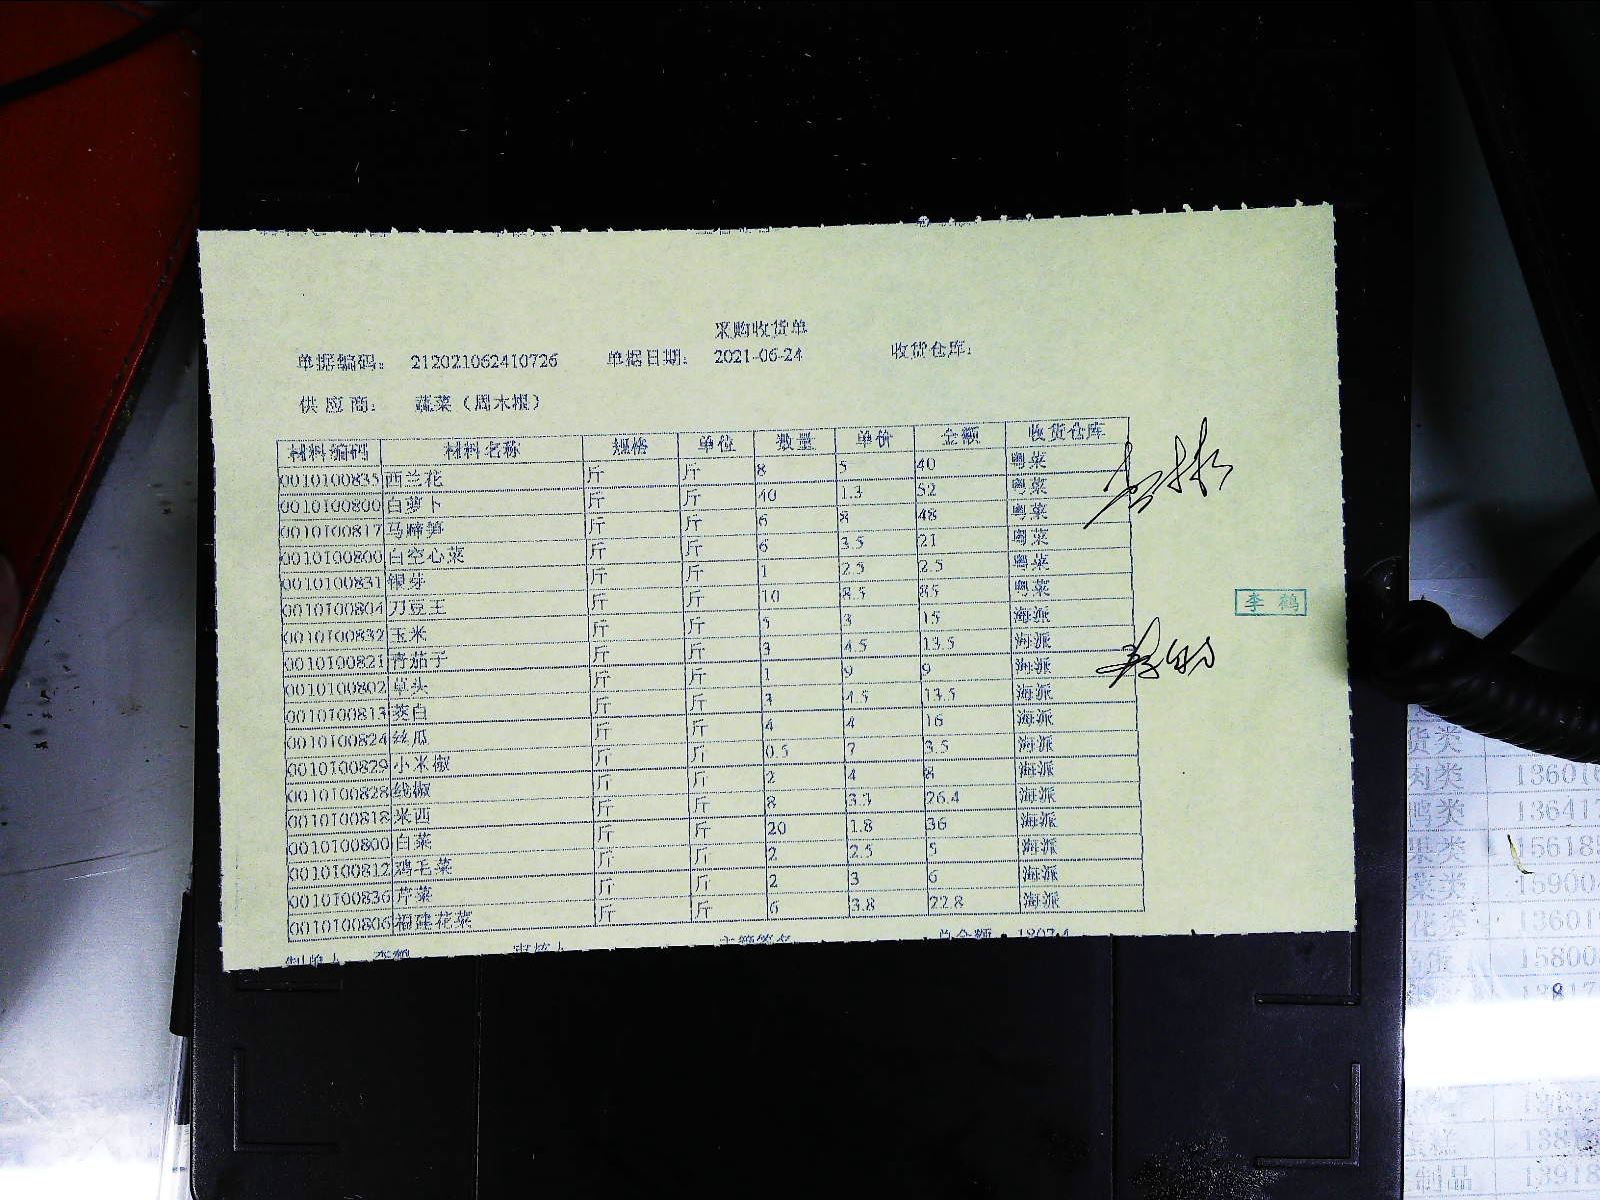 采购收货单
单据编码： 212021062410726 单据日期： 2021-06-24 收货仓库：
供 应 商： 蔬菜（周木根）
材料编码 材料名称 规格 单位 数量 单价 金额 收货仓库
0010100835 西兰花 斤 斤 8 5 40 粤菜
0010100800 白萝卜 斤 斤 40 1.3 52 粤菜
0010100817 马蹄笋 斤 斤 6 8 48 粤菜
0010100800 白空心菜 斤 斤 6 3.5 21 粤菜
0010100831 银芽 斤 斤 1 2.5 2.5 粤菜
0010100804 刀豆王 斤 斤 10 8.5 85 粤菜
0010100832 玉米 斤 斤 5 3 15 海派
0010100821 青茄子 斤 斤 3 4.5 13.5 海派
0010100802 草头 斤 斤 1 9 9 海派
0010100813 茭白 斤 斤 3 4.5 13.5 海派
0010100824 丝瓜 斤 斤 4 4 16 海派
0010100829 小米椒 斤 斤 0.5 7 3.5 海派
0010100828 线椒 斤 斤 2 4 8 海派
0010100818 米西 斤 斤 8 3.3 26.4 海派
0010100800 白菜 斤 斤 20 1.8 36 海派
0010100812 鸡毛菜 斤 斤 2 2.5 5 海派
0010100836 芹菜 斤 斤 2 3 6 海派
0010100806 福建花菜 斤 斤 6 3.8 22.8 海派
制单人 李鹤 审核人 主管签名 总金额 1807.4
李 鹤
货类
肉类 13601
鸭类 13641
果类 15618
菜类 15900
花类 13601
15800
13817
制品 13918